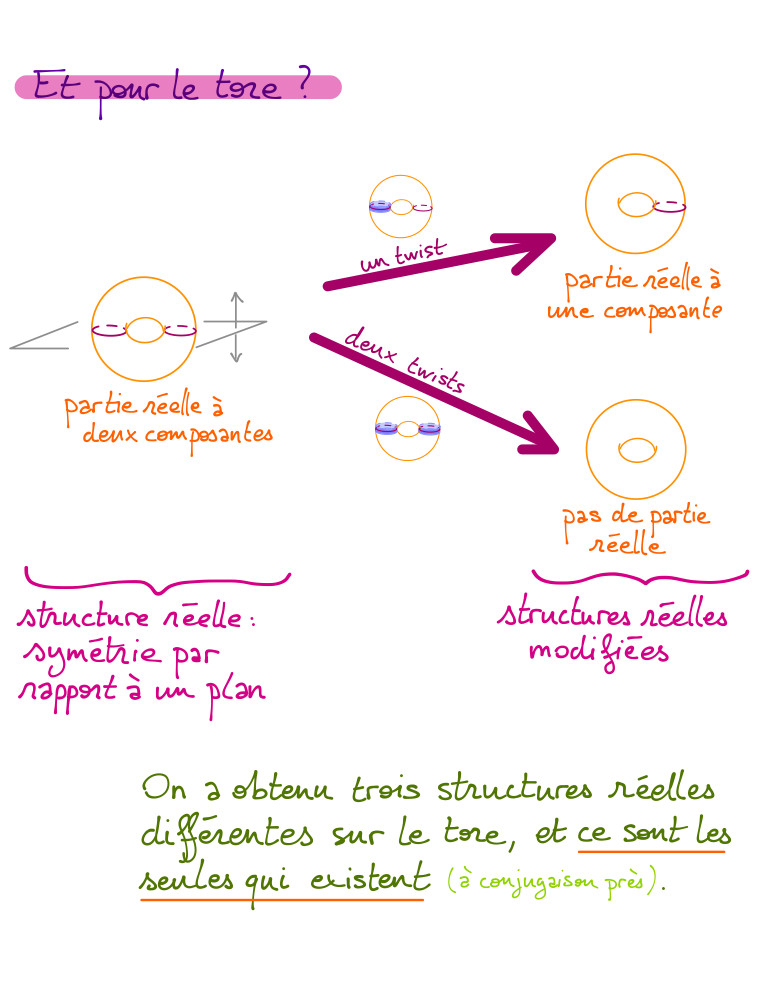 Et pour le tore ?
un twist
partie réelle à
une composante
deux twists
partie réelle à
deux composantes
pas de partie
réelle
structure réelle :
symétrie par
rapport à un plan
structures réelles
modifiées
On a obtenu trois structures réelles
différentes sur le tore, et ce sont les
seules qui existent (à conjugaison près).